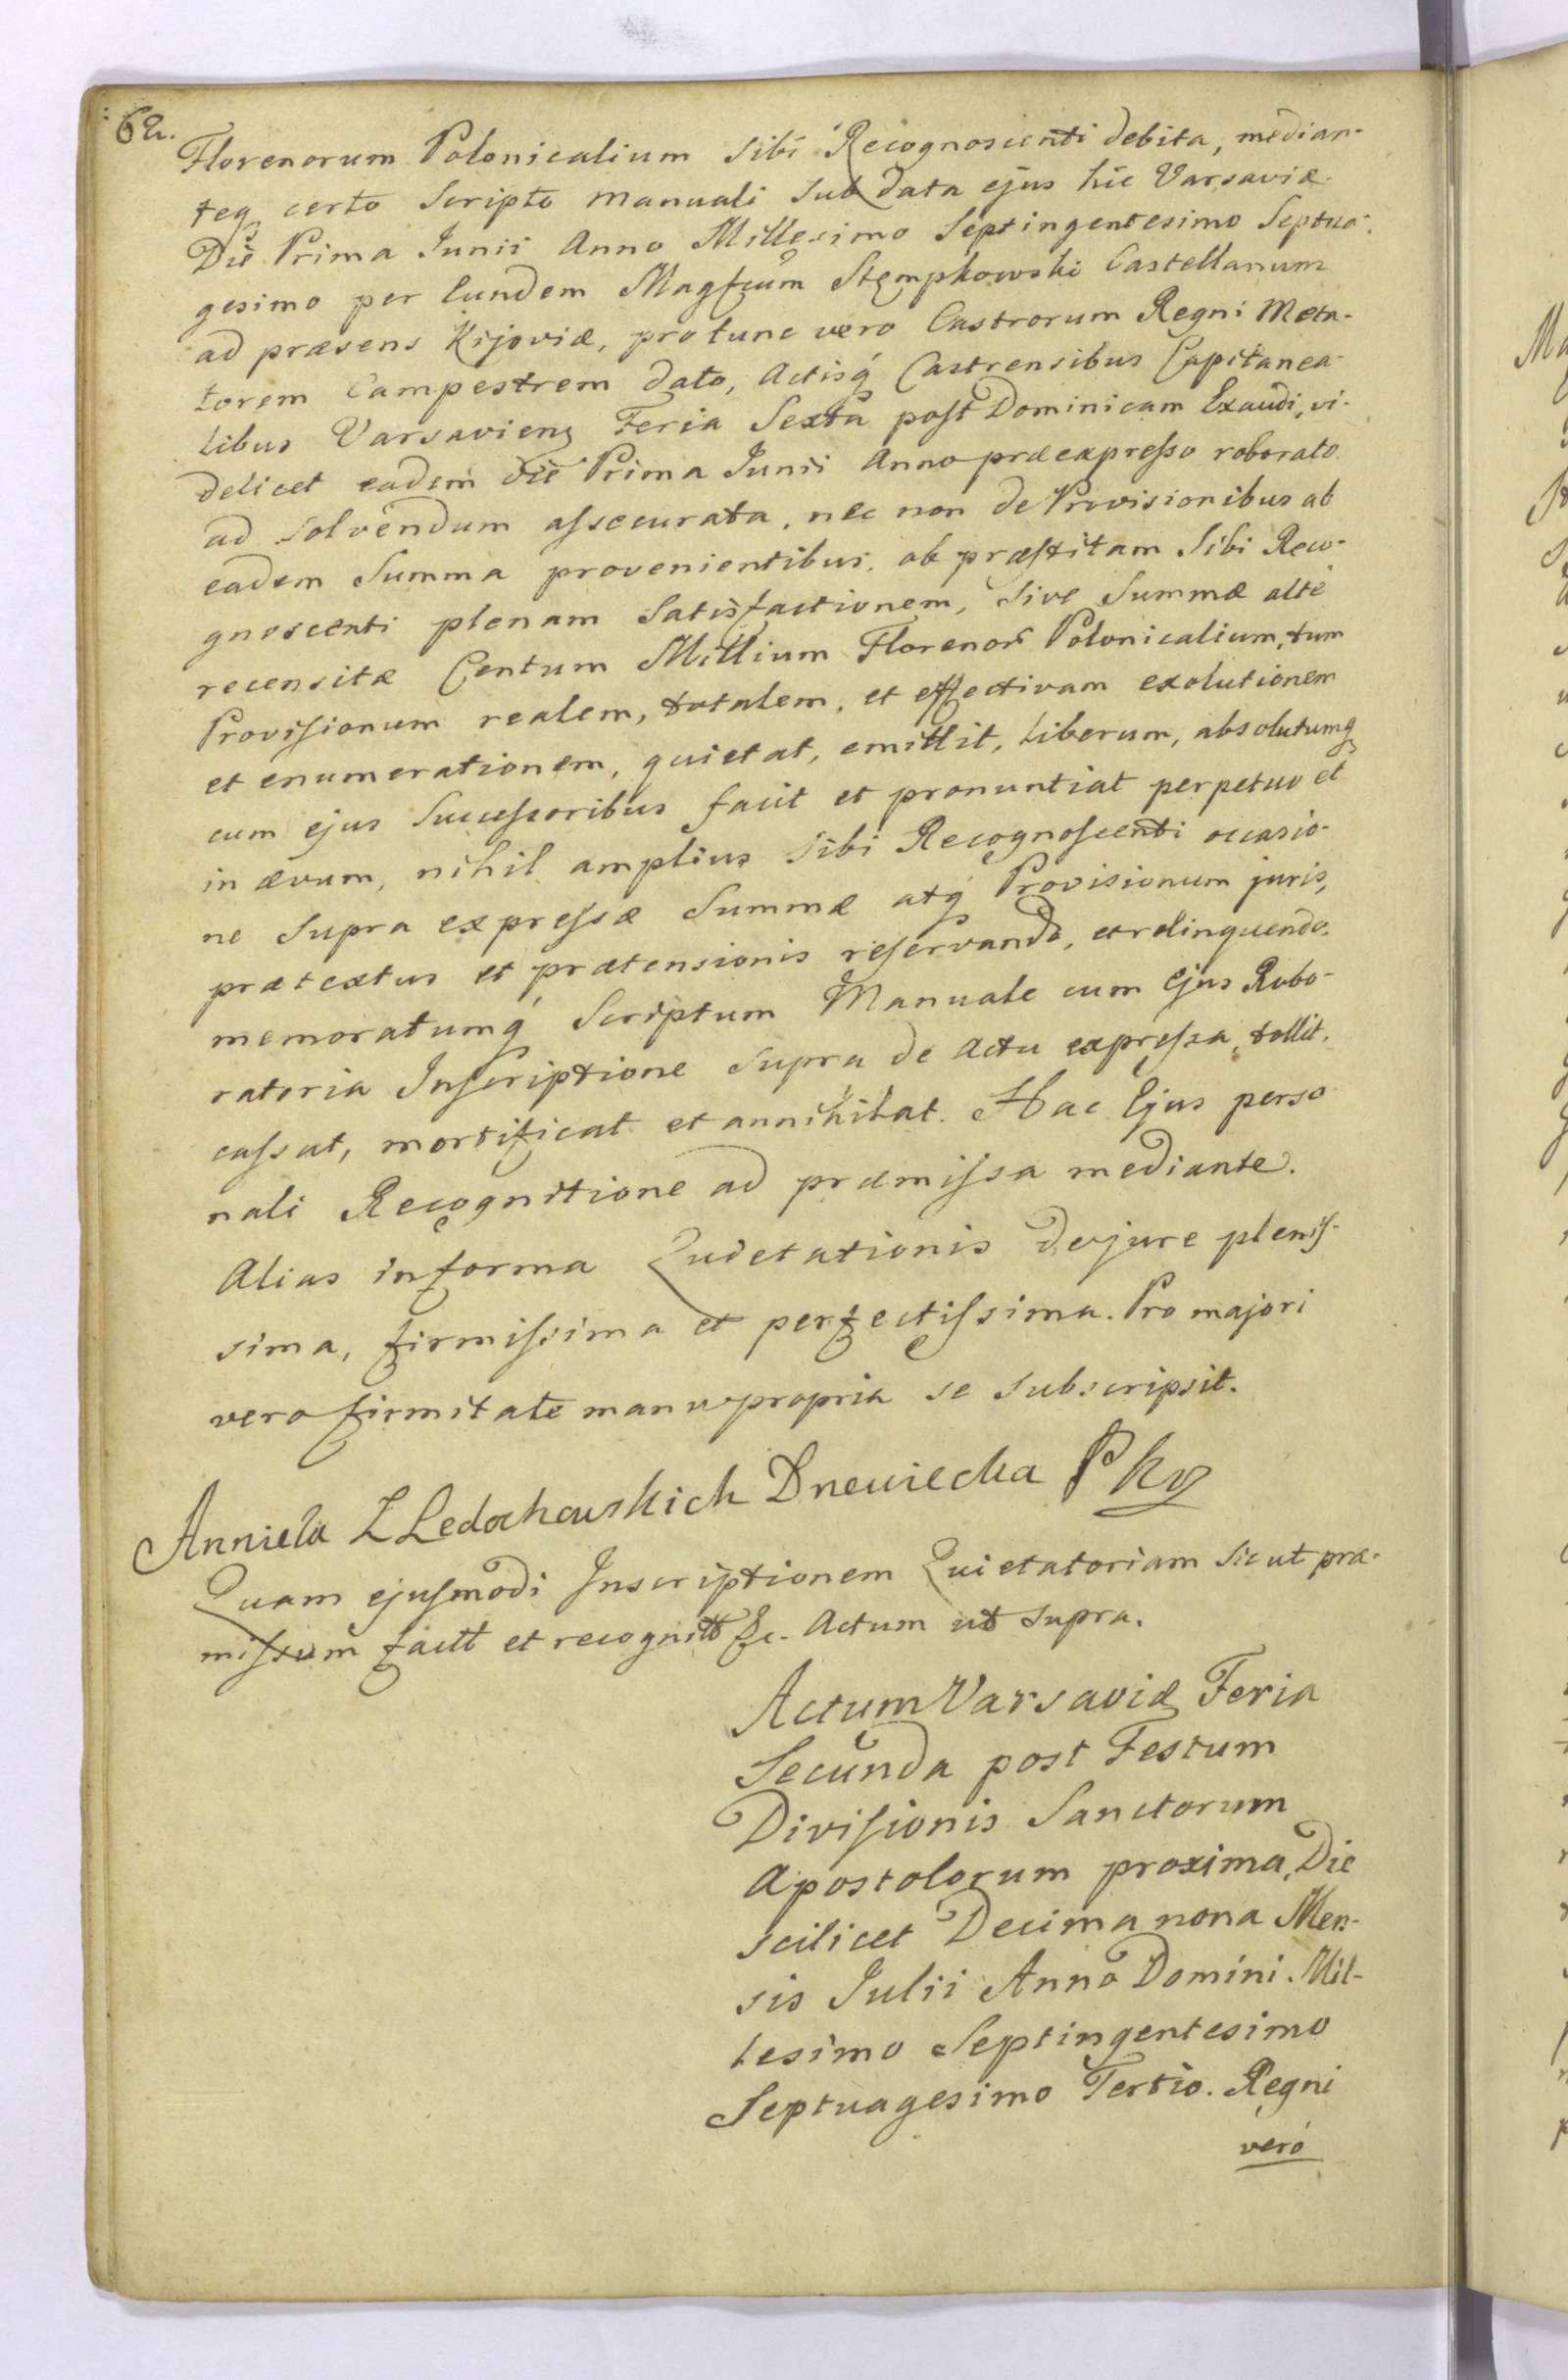 62.
Florenorum Polonicalium sibi Recognoscenti debita, median-
teq certo Scripto manuali sub data ejus hic Varsaviæ
Die Prima Junii Anno Millesimo Septingentesimo Septua-
gesimo per Eundem Magfcum Stempkowski Castellanum
ad præsens Kijoviæ, protunc vero Castrorum Regni Meta-
torem Campestrem dato, Actisq́ Castrensibus Capitanea-
libus Varsaviens Feria Sexta post Dominicam Exaudi, vi-
delicet eadem die Prima Junii Anno præexpresso roborato
ad solvendum assecurata, nec non de Provisionibus ab
eadem Summa provenientibus, ob præstitam Sibi Reco-
gnoscenti plenam Satisfactionem, sive Summæ alte
recensitæ Centum Millium Florenor Polonicalium, tum
Provisionum realem, totalem, et effectivam exolutionem
et enumerationem, quietat, emittit, liberum, absolutumq
cum ejus Successoribus facit et pronuntiat perpetuo et
in ævum, nihil amplius sibi Recognoscenti occasio-
ne Supra expressæ Summæ atq́ Provisionum juris,
prætextus et prætensionis reservando, et relinquendo.
memoratumq́ Scriptum Manuale cum Ejus Robo-
ratoria Inscriptione supra de Actu expressa, tollit.
cassat, mortificat et annihilat. Hac Ejus perso
nali Recognitione ad præmissa mediante.
Alias in forma Quietationis de jure plenis-
sima, firmissima et perfectissima. Pro majori
vero firmitate manu propria se subscripsit.
Anniela Z Ledochowskich Dnewiecka P
Quam ejusmodi Inscriptionem Quietatoriam sicut præ-
missum facit et recognitt &c. Actum ut supra.
Actum Varsaviæ Feria
Secunda post Festum
Divisionis Sanctorum
Apostolorum proxima, Die
scilicet Decima nona Men-
sis Julii Anno Domini Mil-
lesimo Septingentesimo
Septuagesimo Tertio. Regni
veró